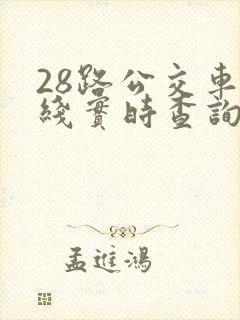 28路公交車
綫實時查詢
孟進鴻